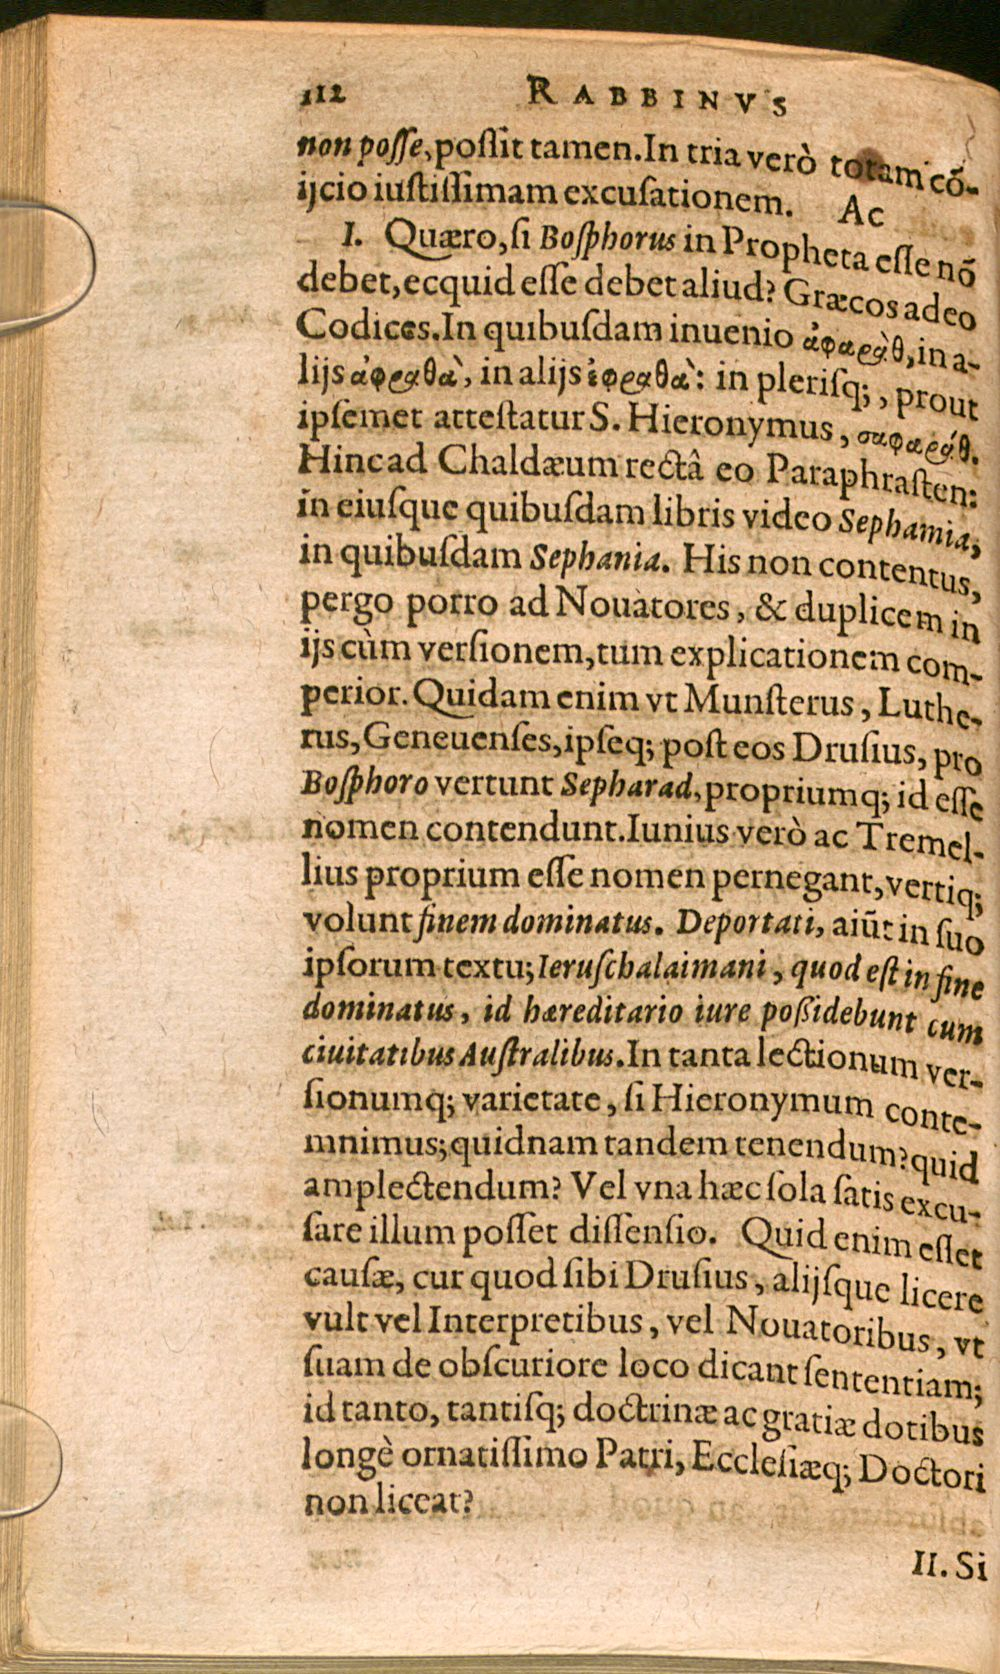 112 RABBINVS
non posse, possit tamen. In tria verò totam cō-
ijcio iustissimam excusationem. Ac
I. Quæro, si Bosphorus in Propheta esse nō
debet, ecquid esse debet aliud? Græcos adeo
Codices. In quibusdam inuenio ἀφαρὰθ, in a-
lijs ἀφραθὰ, in alijs ἐφραθὰ: in plerisq;, prout
ipsemet attestatur S. Hieronymus, σαφαράθ.
Hinc ad Chaldæum rectâ eo Paraphrasten:
in eiusque quibusdam libris video Sephamia,
in quibusdam Sephania. His non contentus,
pergo porro ad Nouatores, & duplicem in
ijs cùm versionem, tum explicationem com-
perior. Quidam enim vt Munsterus, Luthe-
rus, Geneuenses, ipseq; post eos Drusius, pro
Bosphoro vertunt Sepharad, propriumq; id esse
nomen contendunt. Iunius verò ac Tremel-
lius proprium esse nomen pernegant, vertiq;
volunt finem dominatus. Deportati, aiūt in suo
ipsorum textu; Ieruschalaimani, quod est in fine
dominatus, id hæreditario iure poßidebunt cum
ciuitatibus Australibus. In tanta lectionum ver-
sionumq; varietate, si Hieronymum conte-
mnimus; quidnam tandem tenendum? quid
amplectendum? Vel vna hæc sola satis excu-
sare illum posset dissensio. Quid enim esset
causæ, cur quod sibi Drusius, alijsque licere
vult vel Interpretibus, vel Nouatoribus, vt
suam de obscuriore loco dicant sententiam;
id tanto, tantisq; doctrinæ ac gratiæ dotibus
longè ornatissimo Patri, Ecclesiæq; Doctori
non liceat?
II. Si